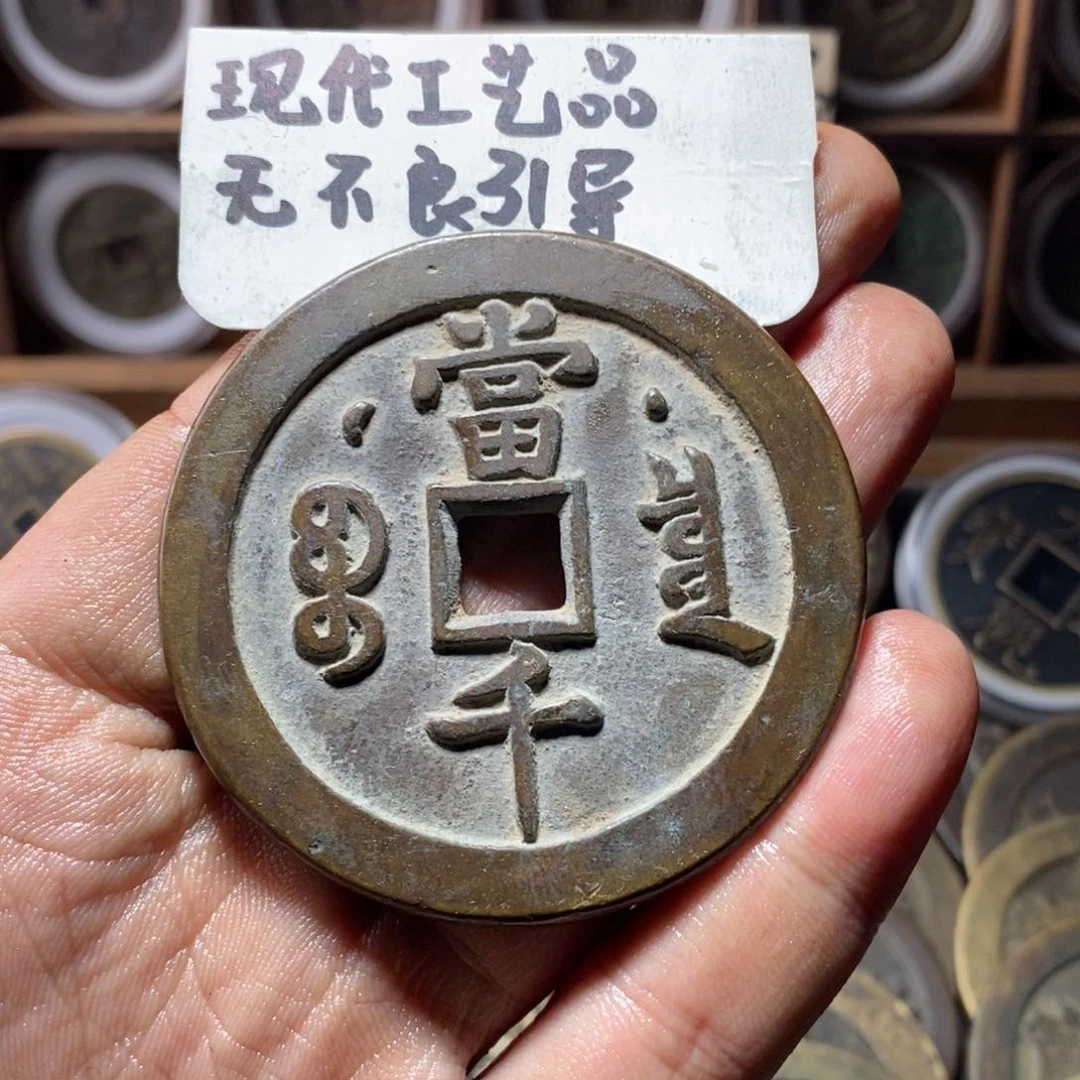 现代工艺品
无不良引导
當
千